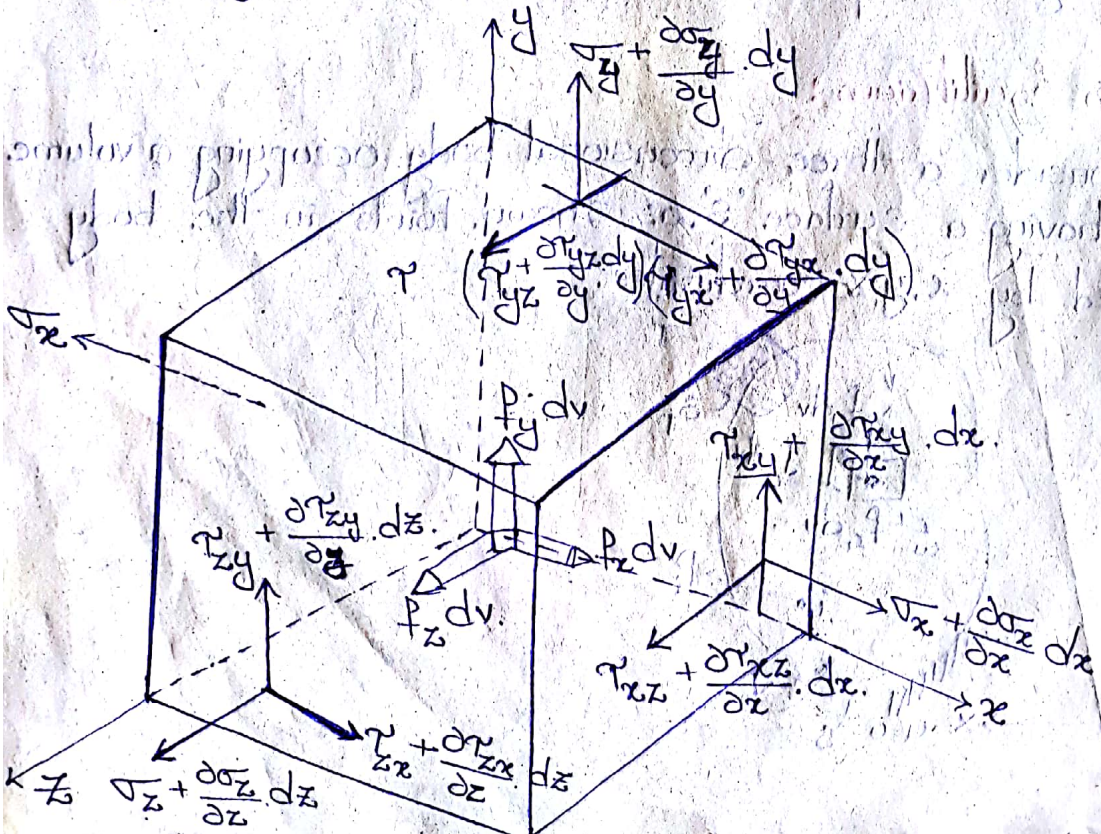 y
σy + ∂σy/∂y . dy
τ (τyz + ∂τyz/∂y . dy) (τyx + ∂τyx/∂y . dy)
σx
fy dv
τxy + ∂τxy/∂x . dx.
τzy + ∂τzy/∂z . dz.
fx dv
fz dv.
σx + ∂σx/∂x dx
τxz + ∂τxz/∂x . dx.
x
τzx + ∂τzx/∂z . dz
z
σz + ∂σz/∂z . dz